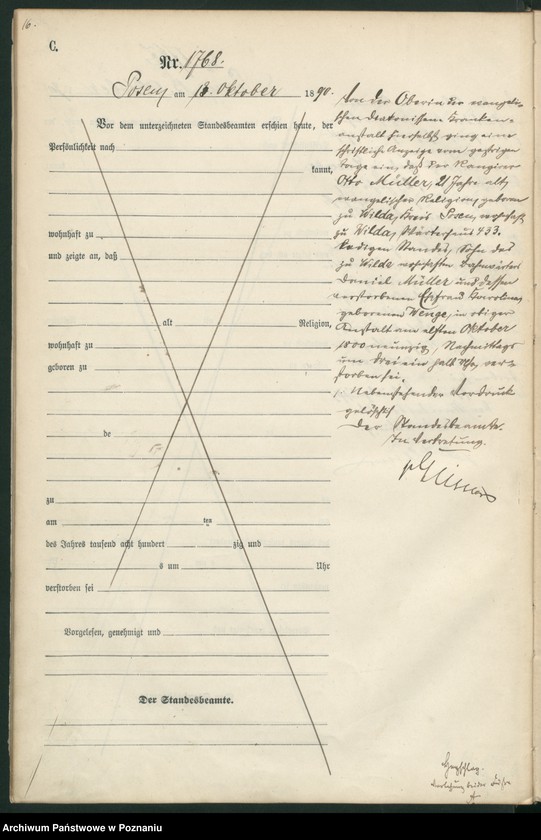 16.
C.
Nr. 1768.
Posen am 13. Oktober 1890.
Vor dem unterzeichneten Standesbeamten erschien heute, der
Persönlichkeit nach
kannt,
wohnhaft zu
und zeigte an, daß
alt Religion,
wohnhaft zu
geboren zu
de
zu
am ten
des Jahres tausend acht hundert zig und
s um Uhr
verstorben sei
Vorgelesen, genehmigt und
Der Standesbeamte.
Von der Oberin der evangeli-
schen Diakonissen Kranken-
anstalt hierselbst ging eine
schriftliche Anzeige vom gestrigen
Tage ein, daß der Rangirer
Otto Müller, 21 Jahre alt,
evangelischer Religion, geboren
zu Wilda, Kreis Posen, wohnhaft
zu Wilda, Wärterhaus 433.
ledigen Standes, Sohn des
zu Wilda wohnhaften Bahnwärters
Daniel Müller und dessen
verstorbenen Ehefrau Karoline,
geborenen Wenge, in obiger
Anstalt am elften Oktober
1800 neunzig, Nachmittags
um drei ein halb Uhr, ver-
storben sei.
Nebenstehender Vordruck
gelöscht
Der Standesbeamte.
In Vertretung.
Archiwum Państwowe w Poznaniu